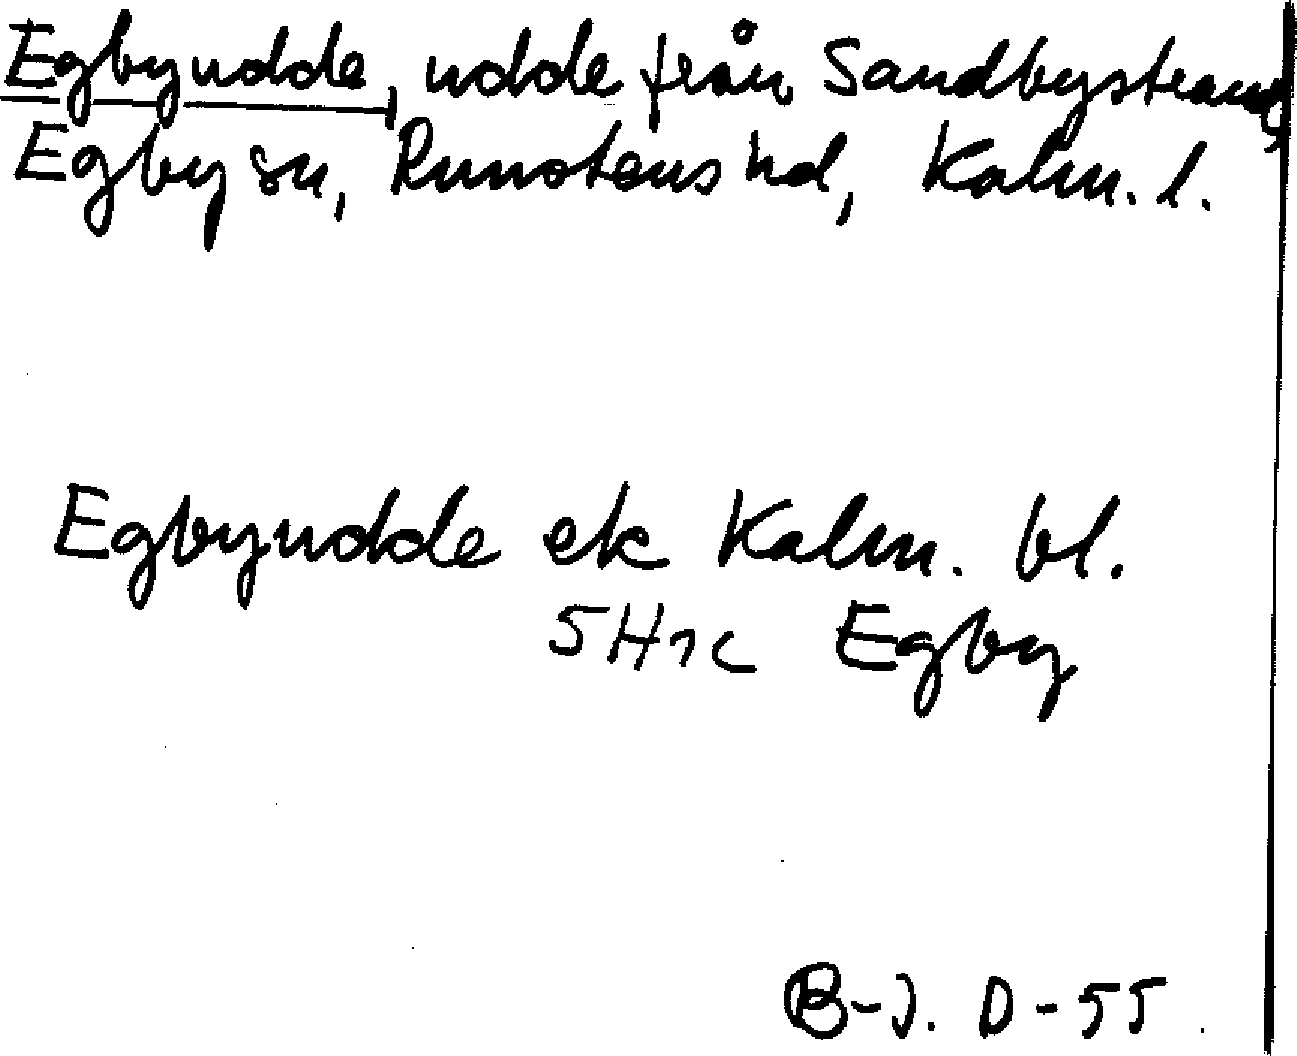 Egbyudde, udde från Sandbystrand,
Egby sn, Runstens hd, Kalm. l.
Egbyudde ek Kalm. bl.
5H1c Egby
B-J. D-55